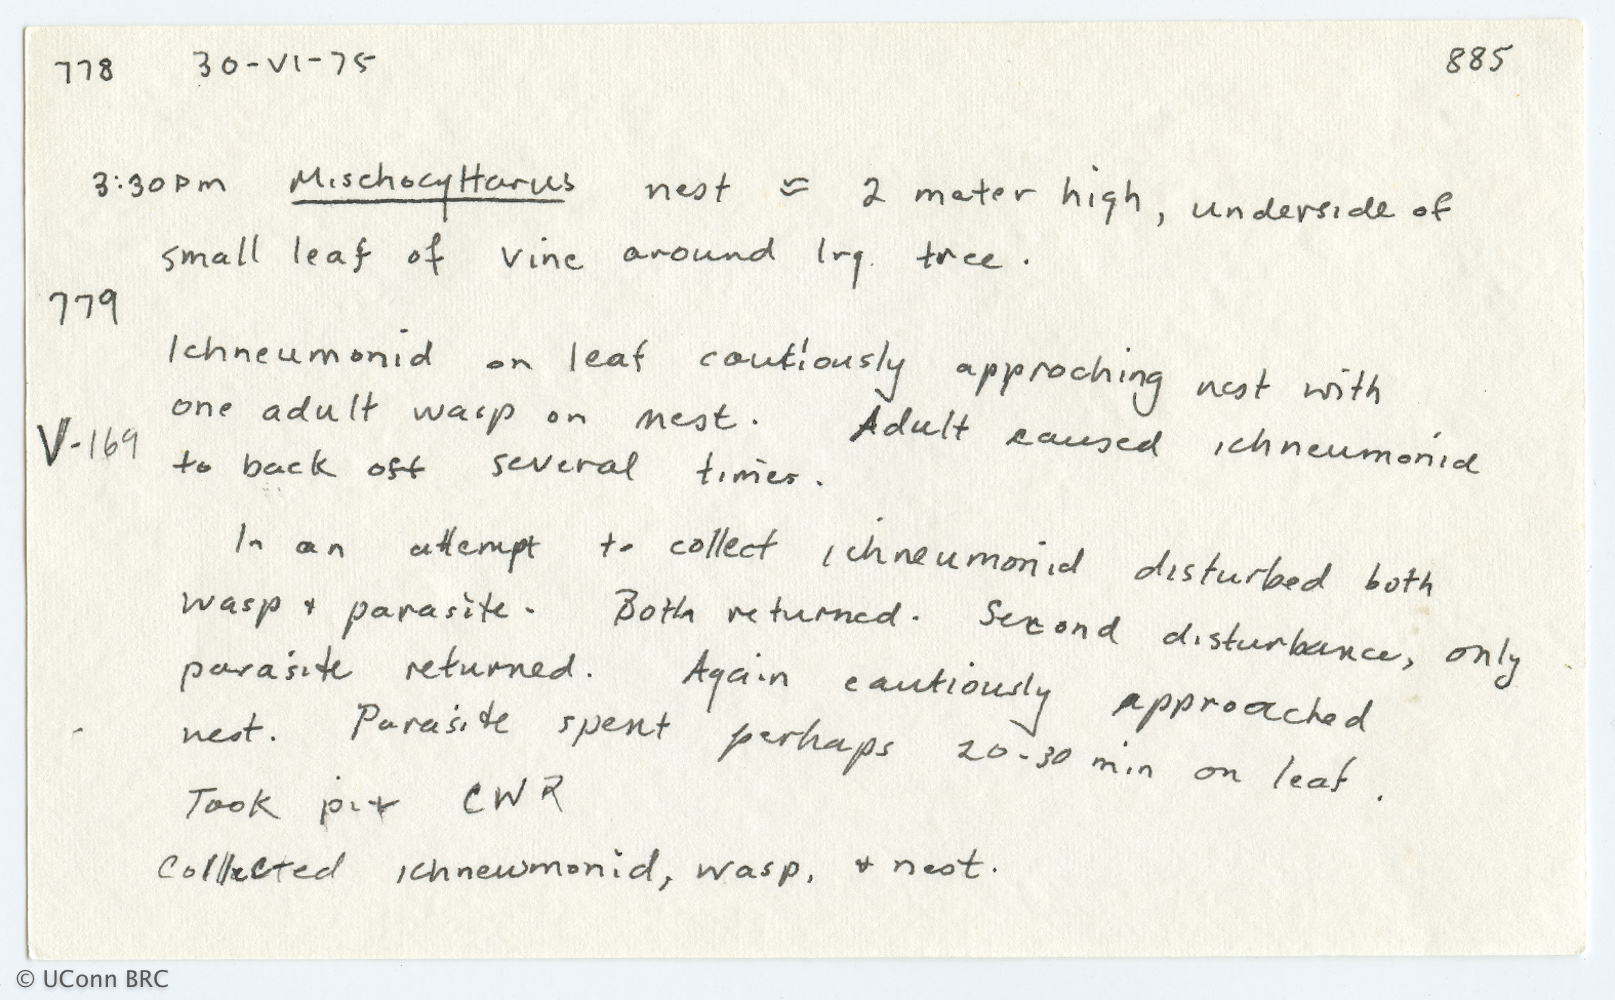 778 30-VI-75 885
3:30pm Mischocyttarus nest ≈ 2 meter high, underside of
small leaf of vine around lrg. tree.
779
Ichneumonid on leaf cautiously approching nest with
one adult wasp on nest. Adult caused ichneumonid
V-169
to back off several times.
In an attempt to collect ichneumonid disturbed both
wasp + parasite. Both returned. Second disturbance, only
parasite returned. Again cautiously approached
nest. Parasite spent perhaps 20-30 min on leaf.
Took CWR
Collected ichneumonid, wasp, + nest.
© UConn BRC